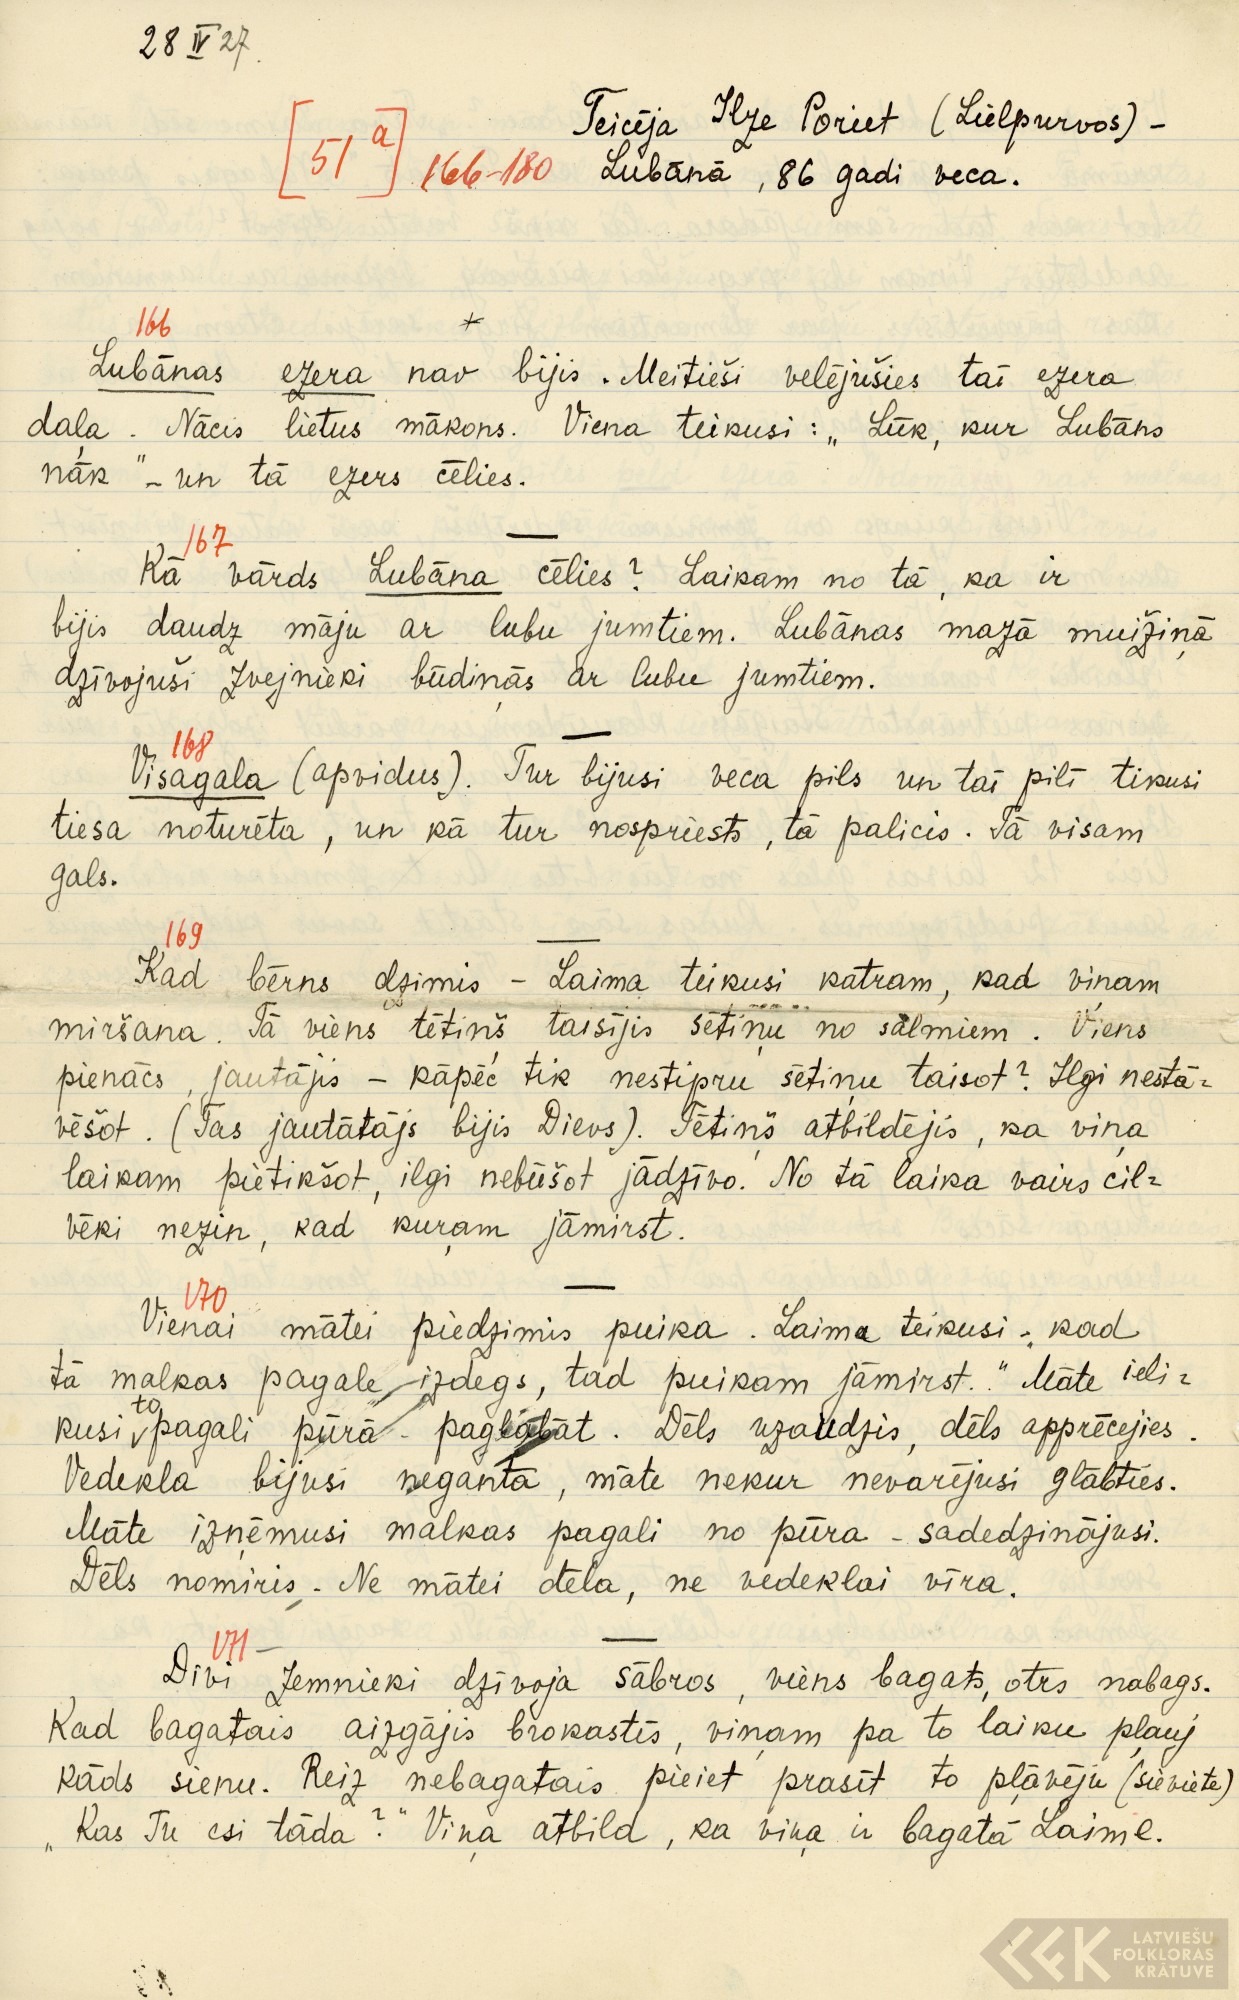 28 IV 27.
Teicēja Ilze Poriet (Lielpurvos) -
[51 a] 166-180 Lubānā, 86 gadi veca.
166
Lubānas ezera nav bijis. Meitieši velējušies tai ezera
daļa. Nācis lietus mākons. Viena teikusi: „Lūk, kur Lubāns
nāk" - un tā ezers cēlies.
167
Kā vārds Lubāna cēlies? Laikam no tā, ka ir
bijis daudz māju ar lubu jumtiem. Lubānas mazā muižiņā
dzīvojuši zvejnieki būdiņās ar lubu jumtiem.
168
Visagala (apvidus). Tur bijusi veca pils un tai pilī tikusi
tiesa noturēta, un kā tur nospriests, tā palicis. Tā visam
gals.
169
Kad bērns dzimis - Laima teikusi katram, kad viņam
miršana. Tā viens tētiņš taisījis sētiņu no salmiem. Viens
pienācs, jautājis - kāpēc tik nestipru sētiņu taisot? Ilgi nestā=
vēšot. (Tas jautātājs bijis Dievs). Tētiņš atbildējis, ka viņa
laikam pietikšot, ilgi nebūšot jādzīvo. No tā laika vairs cil=
vēki nezin, kad kuŗam jāmirst.
170
Vienai mātei piedzimis puika. Laima teikusi: kad
tā malkas pagale izdegs, tad puikam jāmirst." Māte ieli=
kusi to pagali pūrā - paglabāt. Dēls uzaudzis, dēls apprēcejies.
Vedekla bijusi neganta, māte nekur nevarējusi glābties.
Māte izņēmusi malkas pagali no pūra - sadedzinājusi.
Dēls nomiris. Ne mātei dēla, ne vedeklai vīra.
171
Divi zemnieki dzīvoja sābros, viens bagats, otrs nabags.
Kad bagatais aizgājis brokastīs, viņam pa to laiku pļauj
kāds sienu. Reiz nebagatais pieiet prasīt to pļāvēju (sieviete)
„Kas Tu esi tāda?" Viņa atbild, ka viņa ir bagatā Laime.
LATVIEŠU
FOLKLORAS
KRĀTUVE